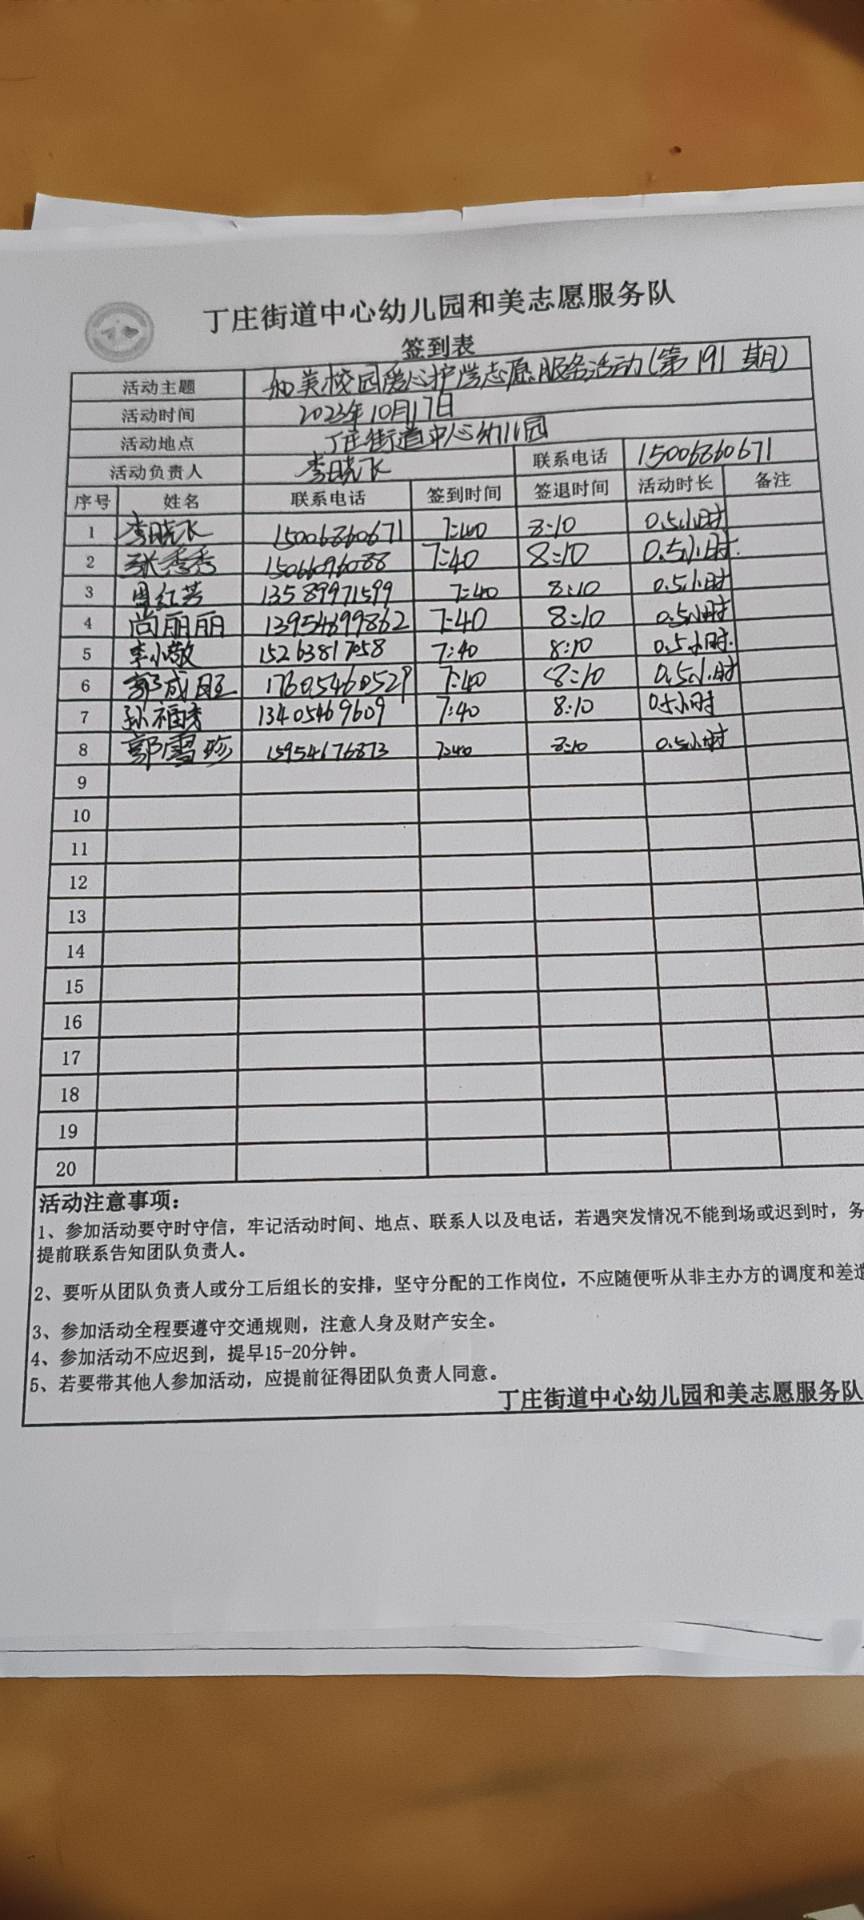 丁庄街道中心幼儿园和美志愿服务队
签到表
活动主题 和美校园爱心护学志愿服务活动(第191期)
活动时间 2023年10月17日
活动地点 丁庄街道中心幼儿园
活动负责人 李晓飞 联系电话 15006860671
序号 姓名 联系电话 签到时间 签退时间 活动时长 备注
1 李晓飞 15006860671 7:40 8:10 0.5小时
2 张秀秀 15066096088 7:40 8:10 0.5小时
3 周红芳 13589971599 7:40 8:10 0.5小时
4 尚丽丽 13954699862 7:40 8:10 0.5小时
5 李小敬 15263817058 7:40 8:10 0.5小时
6 郭成旺 17605460529 7:40 8:10 0.5小时
7 孙福秀 13405469609 7:40 8:10 0.5小时
8 郭雪珍 15954676873 7:40 8:10 0.5小时
9
10
11
12
13
14
15
16
17
18
19
20
活动注意事项:
1、参加活动要守时守信，牢记活动时间、地点、联系人以及电话，若遇突发情况不能到场或迟到时，务
提前联系告知团队负责人。
2、要听从团队负责人或分工后组长的安排，坚守分配的工作岗位，不应随便听从非主办方的调度和差遣
3、参加活动全程要遵守交通规则，注意人身及财产安全。
4、参加活动不应迟到，提早15-20分钟。
5、若要带其他人参加活动，应提前征得团队负责人同意。
丁庄街道中心幼儿园和美志愿服务队